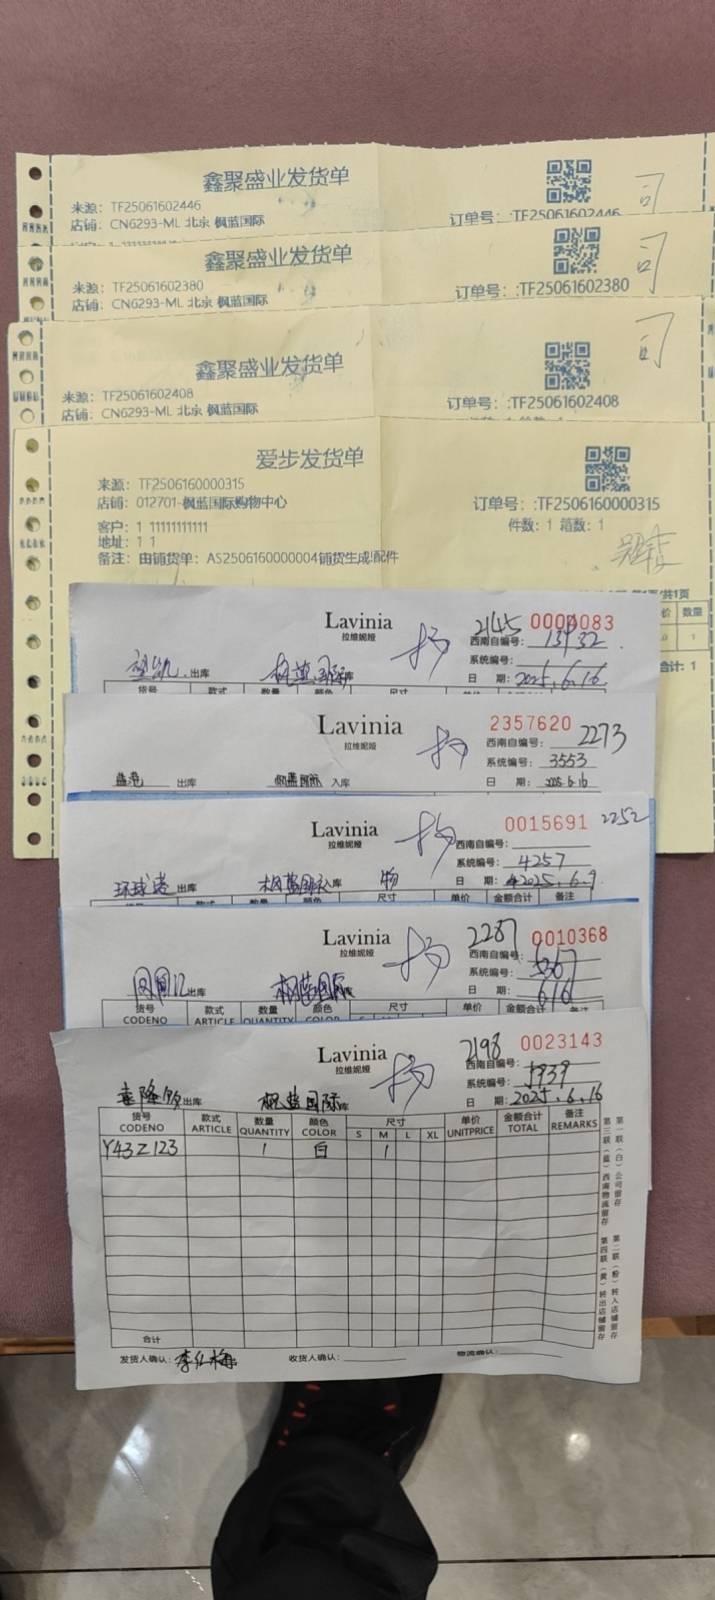 鑫聚盛业发货单
来源: TF25061602446
店铺: CN6293-ML 北京 枫蓝国际
订单号: :TF25061602446
司
鑫聚盛业发货单
来源: TF25061602380
店铺: CN6293-ML 北京 枫蓝国际
订单号: :TF25061602380
司
鑫聚盛业发货单
来源: TF25061602408
店铺: CN6293-ML 北京 枫蓝国际
订单号: :TF25061602408
司
爱步发货单
来源: TF2506160000315
店铺: 012701-枫蓝国际购物中心
订单号: :TF2506160000315
客户: 1 11111111111
件数: 1 箱数: 1
地址: 1 1
备注: 由铺货单: AS2506160000004铺货生成:配件
共1页
价 数量
1
合计: 1
Lavinia
拉维妮娅
2145 0000083
西南自编号: 13932
系统编号:
日 期: 2025.6.16
出库 枫蓝国际
货号 款式 数量 颜色 尺寸
Lavinia
拉维妮娅
2357620
西南自编号: 2273
系统编号: 3553
日 期: 2025.6.16
蓝港 出库 枫蓝国际 入库
Lavinia
拉维妮娅
0015691 2252
西南自编号:
系统编号: 4257
日 期: 2025.6.9
环球港 出库 枫蓝国际 库
尺寸 单价 金额合计 备注
Lavinia
拉维妮娅
2287 0010368
西南自编号:
系统编号: 5367
日 期: 616
出库 枫蓝国际
货号 款式 数量 颜色 尺寸 单价 金额合计 备注
CODENO ARTICLE QUANTITY COLOR
Lavinia
拉维妮娅
2198 0023143
西南自编号:
系统编号: 5939
日 期: 2025.6.16
出库 枫蓝国际 库
货号 款式 数量 颜色 尺寸 单价 金额合计 备注
CODENO ARTICLE QUANTITY COLOR S M L XL UNITPRICE TOTAL REMARKS
Y43Z123 1 白 1
合计
发货人确认: 李仁梅 收货人确认: 物流确认:
第一联(白)公司留存
第二联(粉)转入店铺留存
第三联(蓝)西南物流留存
第四联(黄)转出店铺留存